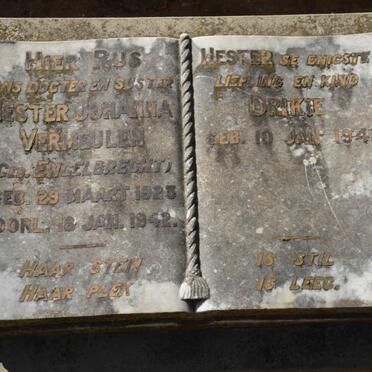 HIER RUS
ONS DOGTER EN SUSTER
HESTER JOHANNA
VERMEULEN
(GEB. ENGELBRECHT)
GEB. 29 MAART 1923
OORL. 18 JAN. 1942.
HAAR STEM
HAAR PLEK
HESTER SE ENIGSTE
LIEFLING EN KIND
DRIKIE
GEB. 10 JAN 194
IS STIL
IS LEEG.